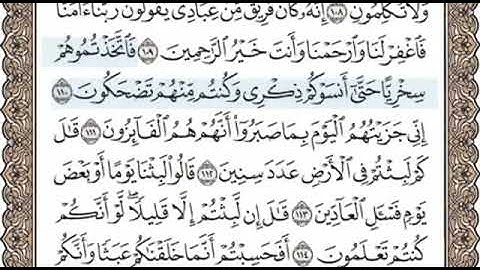 وَلَا تُكَلِّمُونِ ١٠٨ إِنَّهُۥ كَانَ فَرِيقٌ مِّنْ عِبَادِى يَقُولُونَ رَبَّنَآ ءَامَنَّا
فَٱغْفِرْ لَنَا وَٱرْحَمْنَا وَأَنتَ خَيْرُ ٱلرَّٰحِمِينَ ١٠٩ فَٱتَّخَذْتُمُوهُمْ
سِخْرِيًّا حَتَّىٰٓ أَنسَوْكُمْ ذِكْرِى وَكُنتُم مِّنْهُمْ تَضْحَكُونَ ١١٠
إِنِّى جَزَيْتُهُمُ ٱلْيَوْمَ بِمَا صَبَرُوٓا۟ أَنَّهُمْ هُمُ ٱلْفَآئِزُونَ ١١١ قَٰلَ
كَمْ لَبِثْتُمْ فِى ٱلْأَرْضِ عَدَدَ سِنِينَ ١١٢ قَالُوا۟ لَبِثْنَا يَوْمًا أَوْ بَعْضَ
يَوْمٍ فَسْـَٔلِ ٱلْعَآدِّينَ ١١٣ قَٰلَ إِن لَّبِثْتُمْ إِلَّا قَلِيلًا ۖ لَّوْ أَنَّكُمْ
كُنتُمْ تَعْلَمُونَ ١١٤ أَفَحَسِبْتُمْ أَنَّمَا خَلَقْنَٰكُمْ عَبَثًا وَأَنَّكُمْ